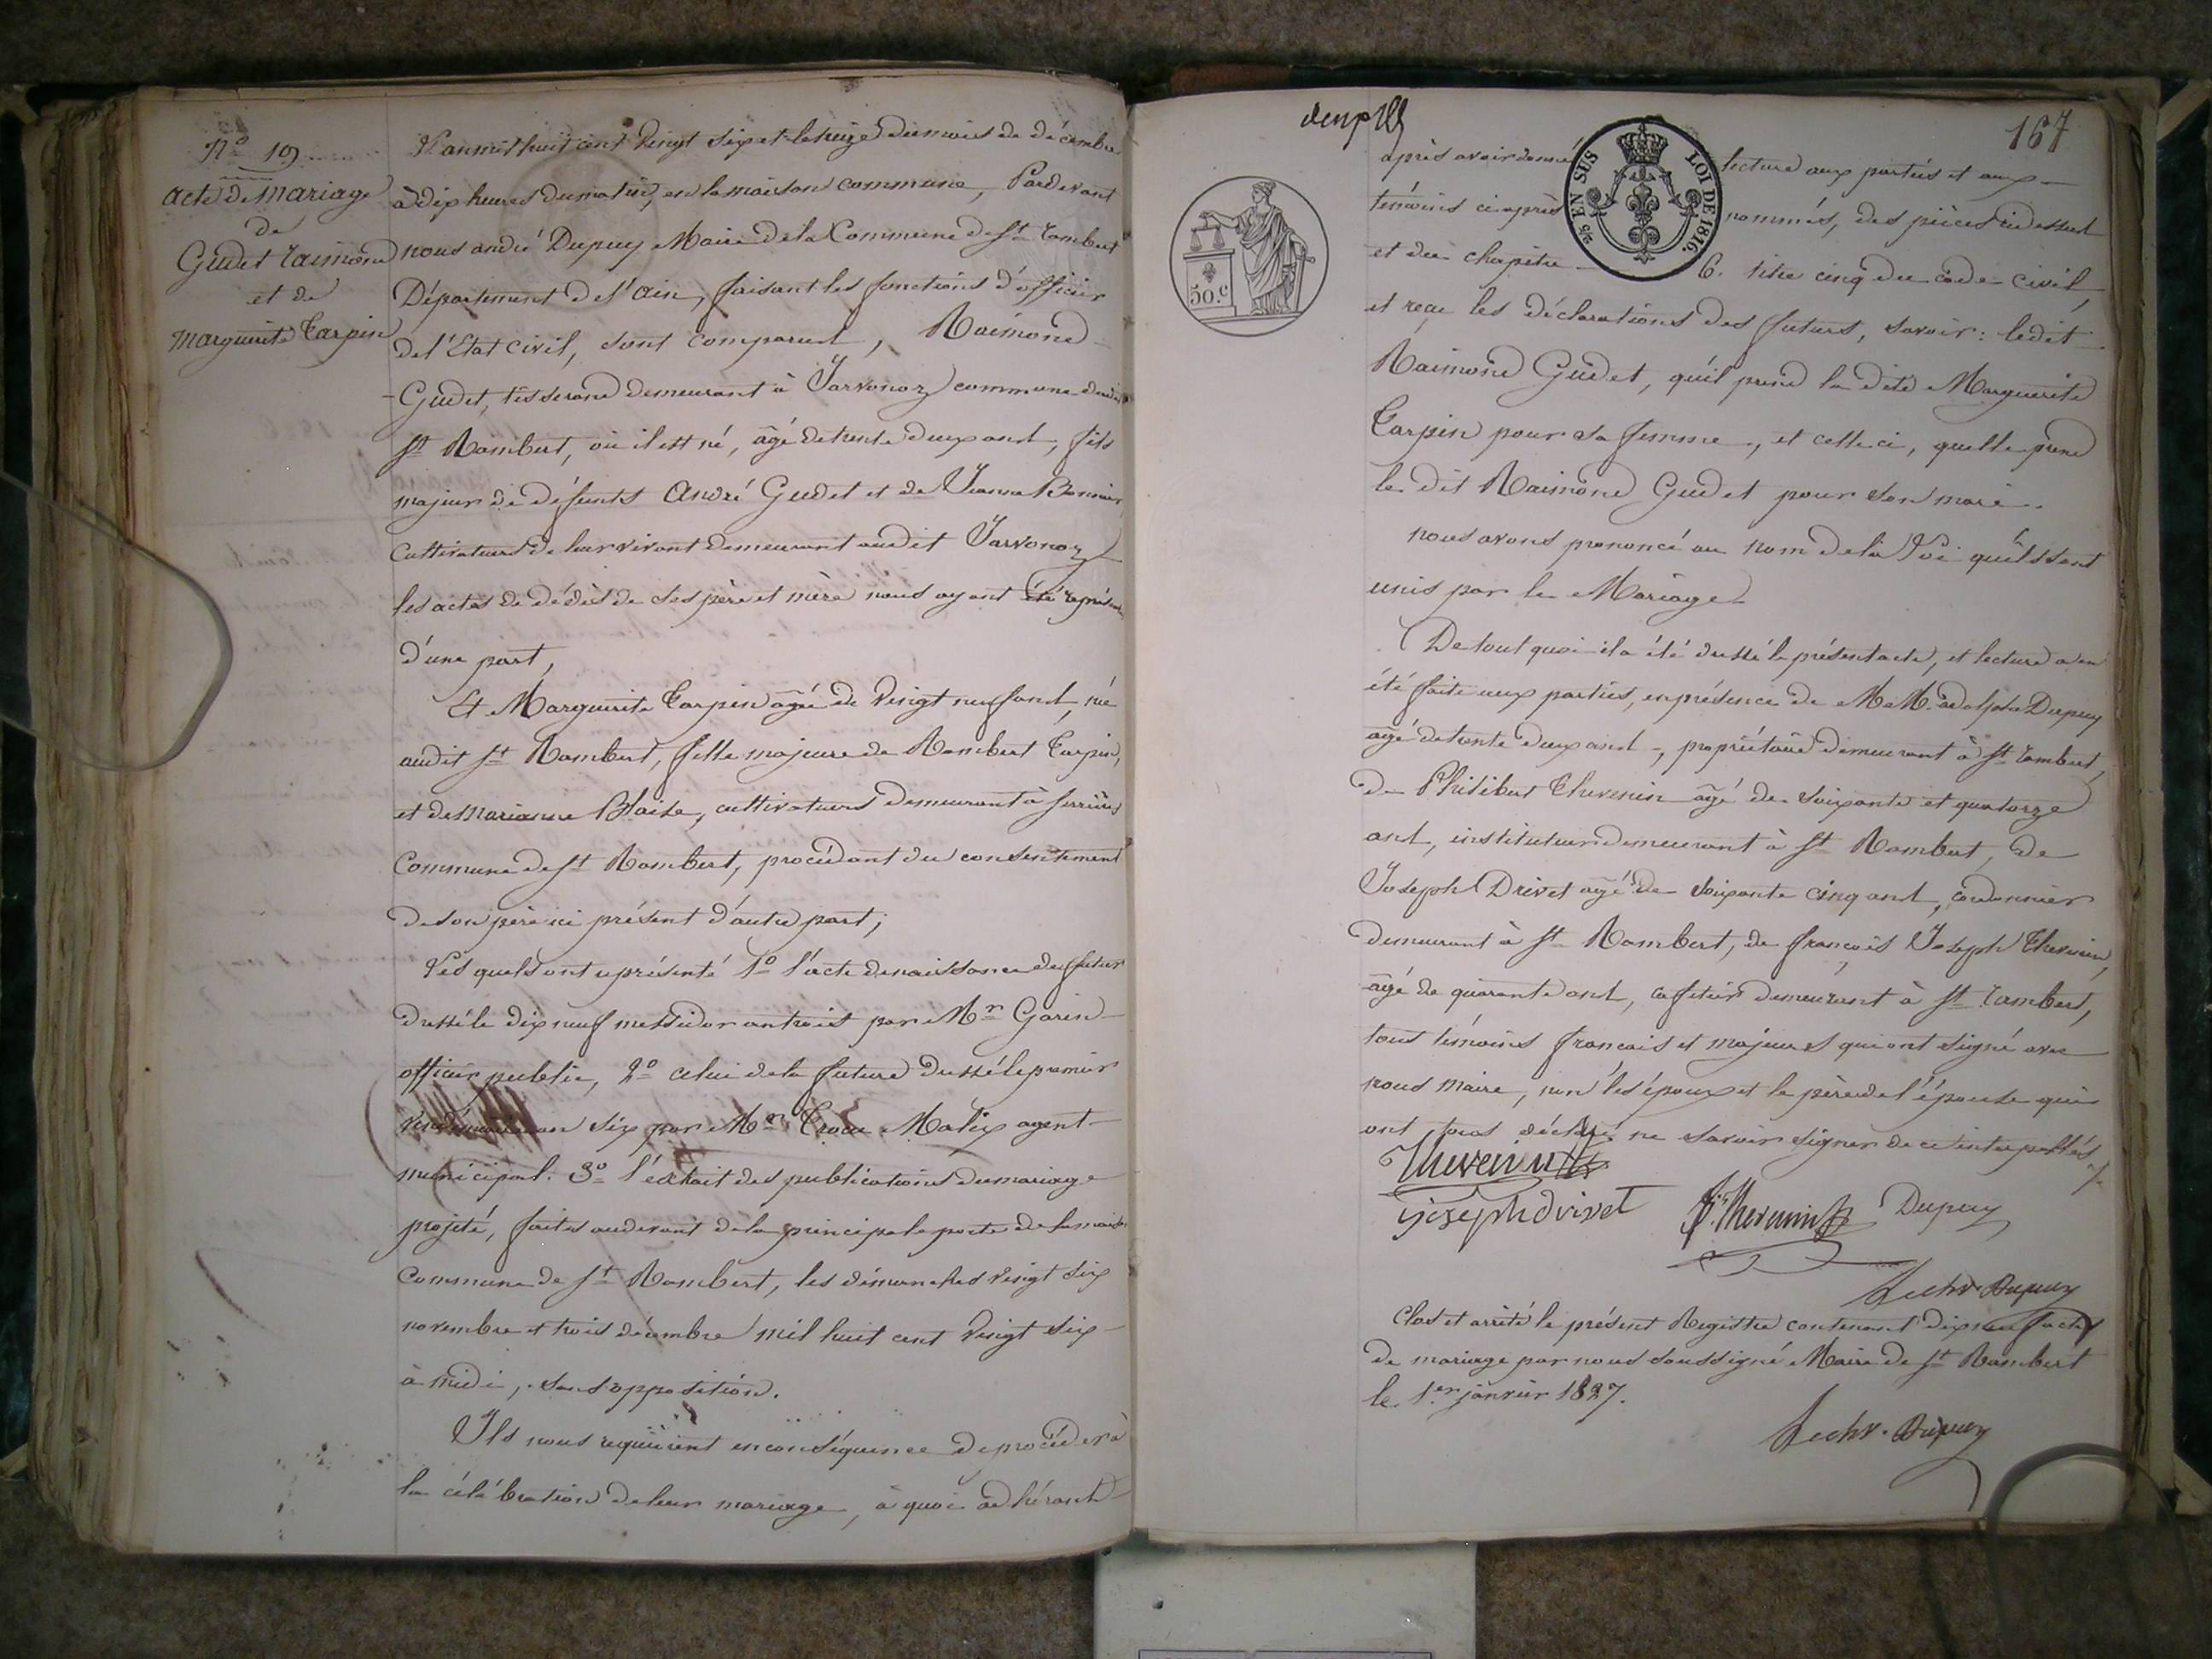 N° 19
acte de Mariage
de
Gudet raimond
et de
marguerite Carpin
L'an mil huit cent vingt six et le seize du mois de décembre
à dix heures du matin, en la maison commune, Pardevant
nous andré Dupuy Maire de la Commune de St rambert
Département de l'ain, faisant les fonctions d'officier
de l'Etat civil, sont comparus, Raimond
Gudet, tisserand demeurant à Javronoz commune dudit
St Rambert, où il est né, âgé de trente deux ans, fils
majeur de défunts André Gudet et de Jeanne Bonnier
cultivateurs de leur vivant demeurant audit Javronoz
les actes de décès de ses père et mère nous ayant été représentés
d'une part,
Et Marguerite Carpin agée de vingt neuf ans, née
audit St Rambert, fille majeure de Rambert Carpin,
et de Marianne Blaise, cultivateurs demeurant à serrières
Commune de St Rambert, procédant du consentement
de son père ici présent d'autre part;
Les quels ont représenté 1° l'acte de naissance du futur
dressé le dix neuf messidor an trois par Mr Garin
officier public, 2° celui de la future dressé le premier
vendémiaire an six par Mr Matix agent
municipal. 3° l'extrait des publications du mariage
projeté, faites au devant de la principale porte de la maison
Commune de St Rambert, les dimanches vingt six
novembre et trois décembre mil huit cent vingt six
à midi, sans opposition.
Ils nous requièrent en conséquence de procéder à
la célébration de leur mariage, à quoi adhérant
167
5/2 EN SUS
LOI DE 1816.
50.c
après avoir donné lecture aux parties et aux
témoins ci après nommés, des pièces ci dessus
et du chapitre 6. titre cinq du code civil
et reçu les déclarations des futurs, savoir: ledit
Raimond Gudet, qu'il prend la dite Marguerite
Carpin pour sa femme, et celle ci, quelle prend
le dit Raimond Gudet pour son mari.
nous avons prononcé au nom de la Loi qu'ils sont
unis par le Mariage
De tout quoi il a été dressé le présent acte, et lecture a en
été faite aux parties, en présence de M.M. adolphe Dupuy
agé de trente deux ans, propriétaire demeurant à St rambert,
de Philibert Thevenin agé de soixante et quatorze
ans, instituteur demeurant à St Rambert, de
Joseph Drivet agé de soixante cinq ans, cordonnier
demeurant à St Rambert, de françois Joseph Thevenin,
âgé de quarante ans, cafetier demeurant à St rambert,
tous témoins français et majeurs qui ont signé avec
nous Maire, non les époux et le père de l'épouse qui
ont tous déclaré ne savoir signer de ce interpellés
Thevenin
joseph drivet
Thevenin
Dupuy
Dupuy
Clos et arrêté le présent Registre contenant dix neuf actes
de mariage par nous soussigné Maire de St Rambert
le 1.er janvier 1827.
Dupuy